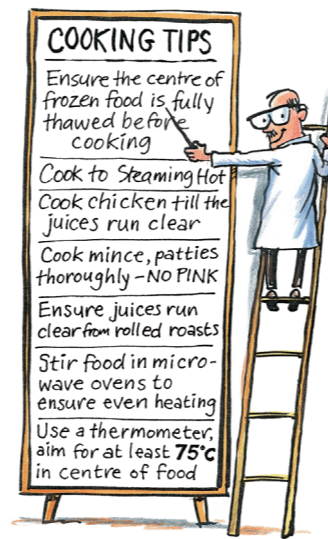 COOKING TIPS
Ensure the centre of
frozen food is fully
thawed before
cooking
Cook to Steaming Hot
Cook chicken till the
juices run clear
Cook mince, patties
thoroughly - NO PINK
Ensure juices run
clear from rolled roasts
Stir food in micro-
wave ovens to
ensure even heating
Use a thermometer,
aim for at least 75°C
in centre of food